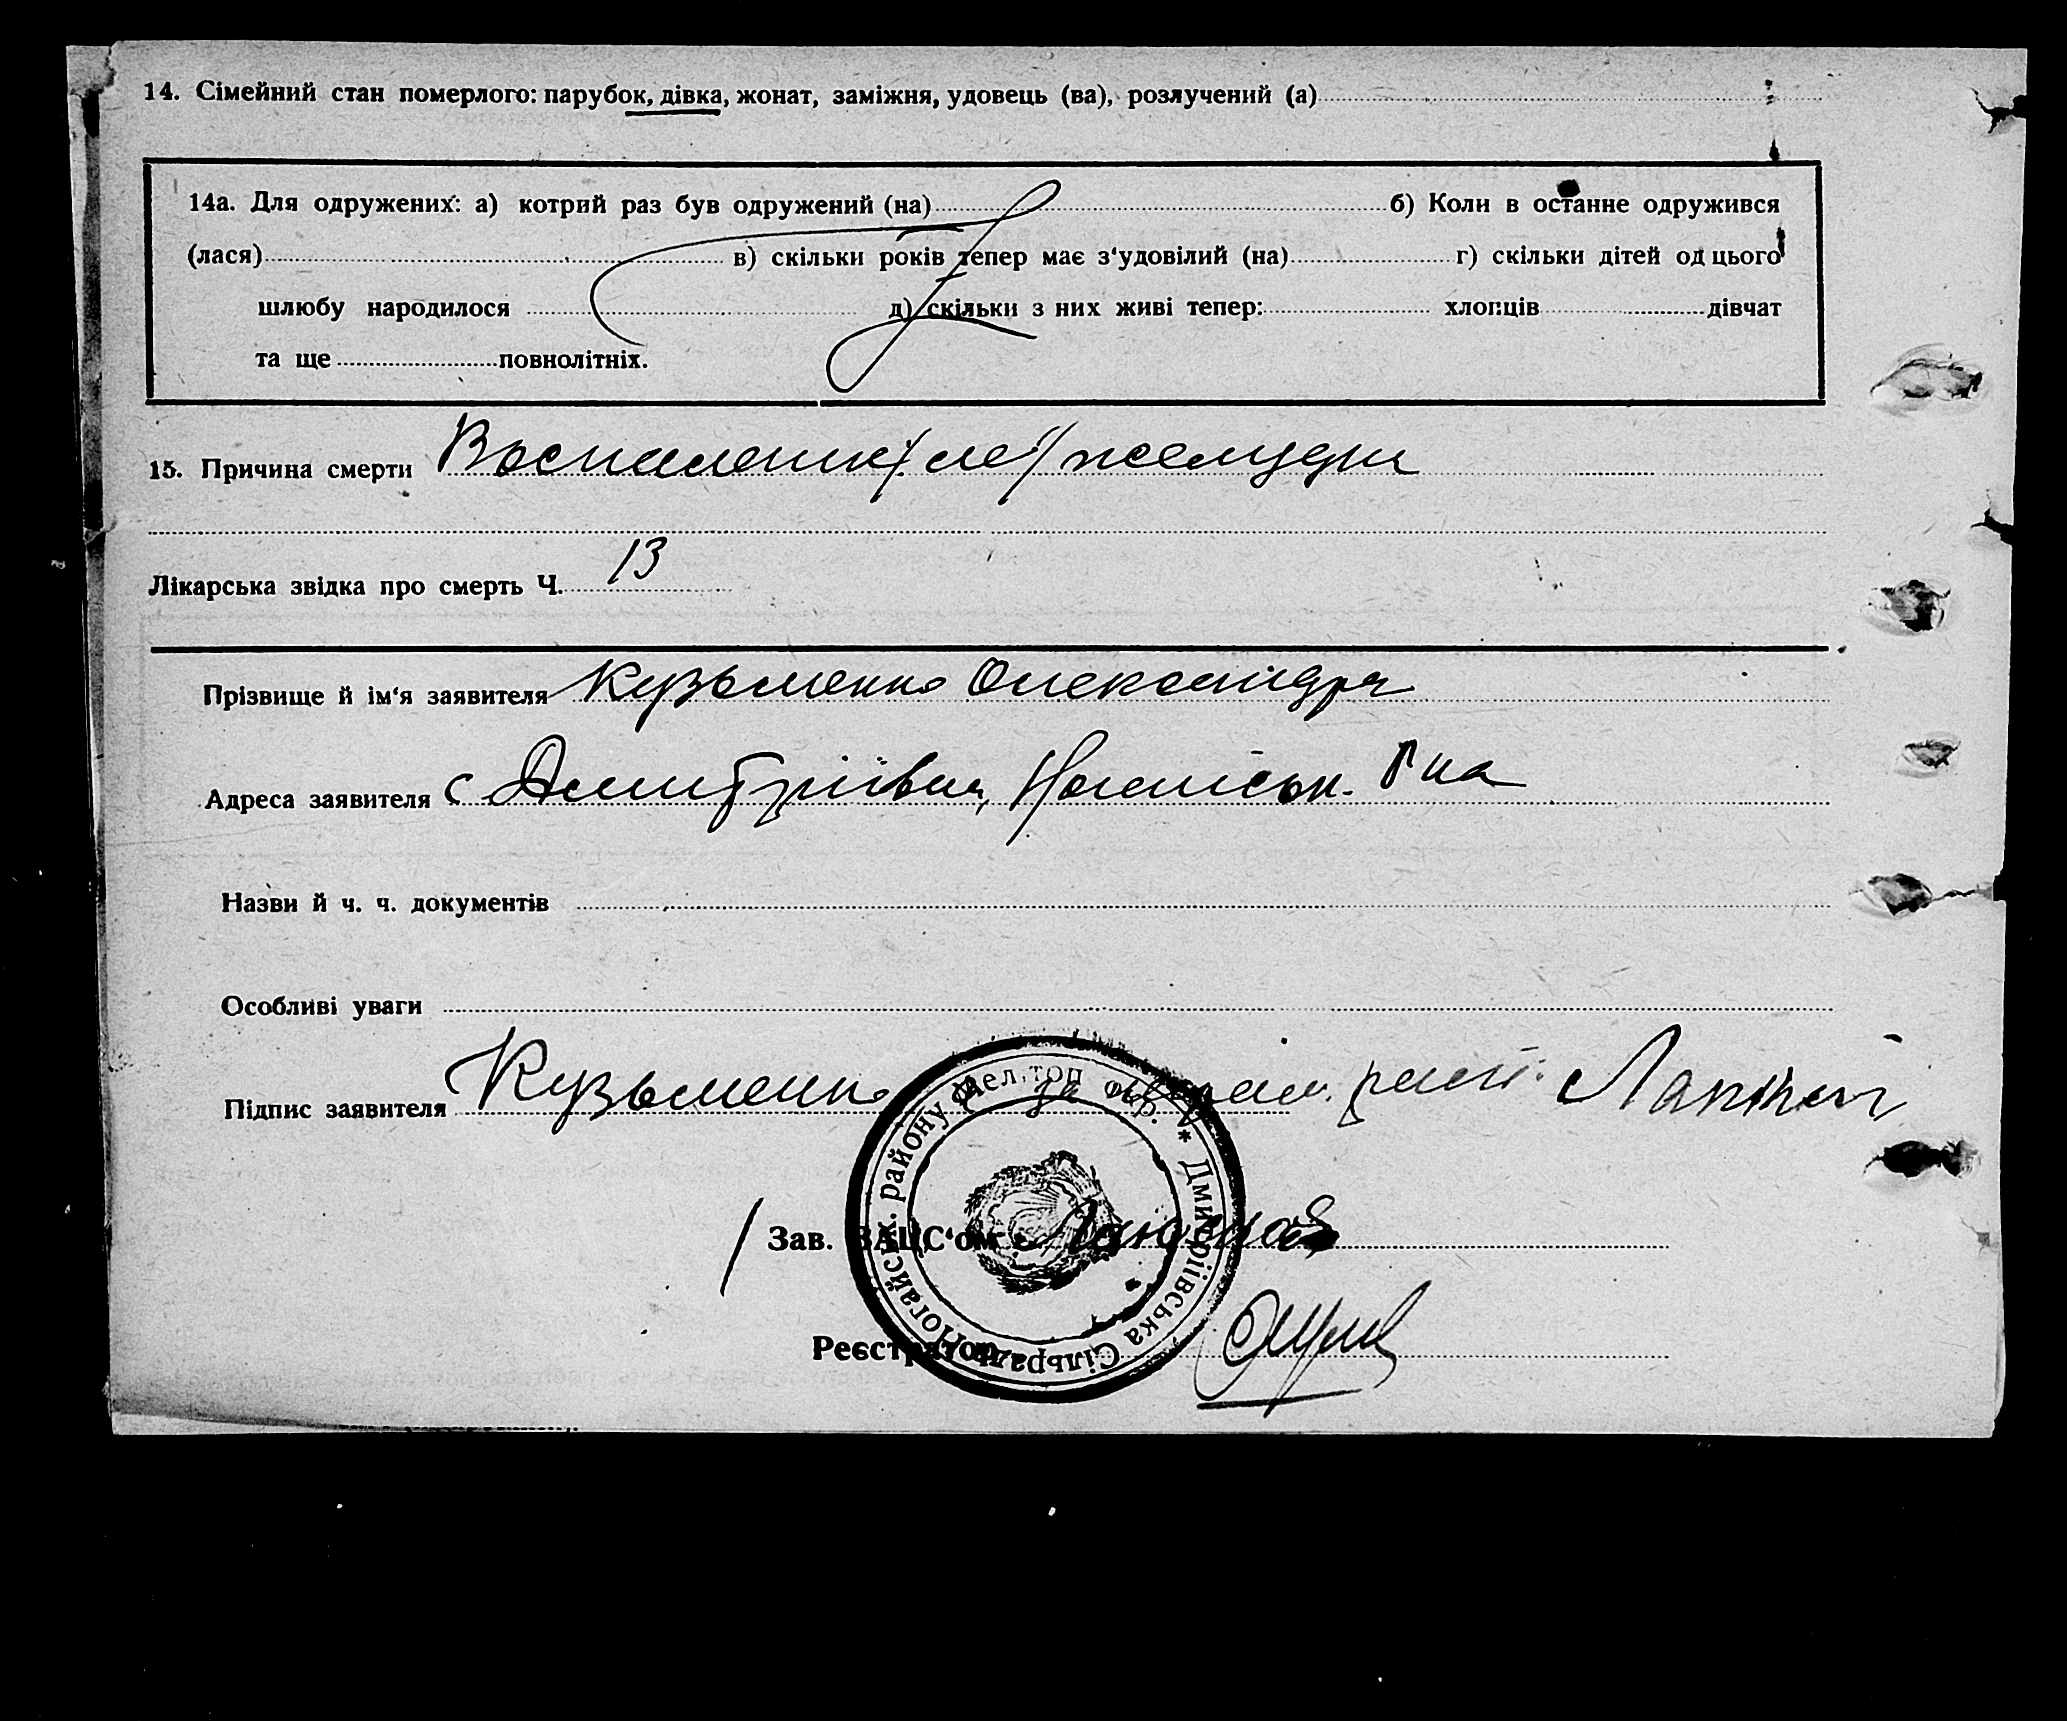 14. Сімейний стан померлого: парубок, дівка, жонат, заміжня, удовець (ва), розлучений (а)
14а. Для одружених: а) котрий раз був одружений (на) б) Коли в останне одружився
(лася) в) скільки років тепер має з‘удовілий (на) г) скільки дітей од цього
шлюбу народилося д) скільки з них живі тепер: хлопців дівчат
та ще повнолітніх.
15. Причина смерти Воспаление желудка
Лікарська звідка про смерть Ч. 13
Прізвище й ім‘я заявителя Кузьменко Олександра
Адреса заявителя с Дмитріївка, Ногайськ. Рна
Назви й ч. ч. документів
Особливі уваги
Підпис заявителя Кузьменко за
Зав. ЗАЦС‘ом
Реєстратор
Дмитріївська Сільрада Ногайськ. району Мел.топ окр. *